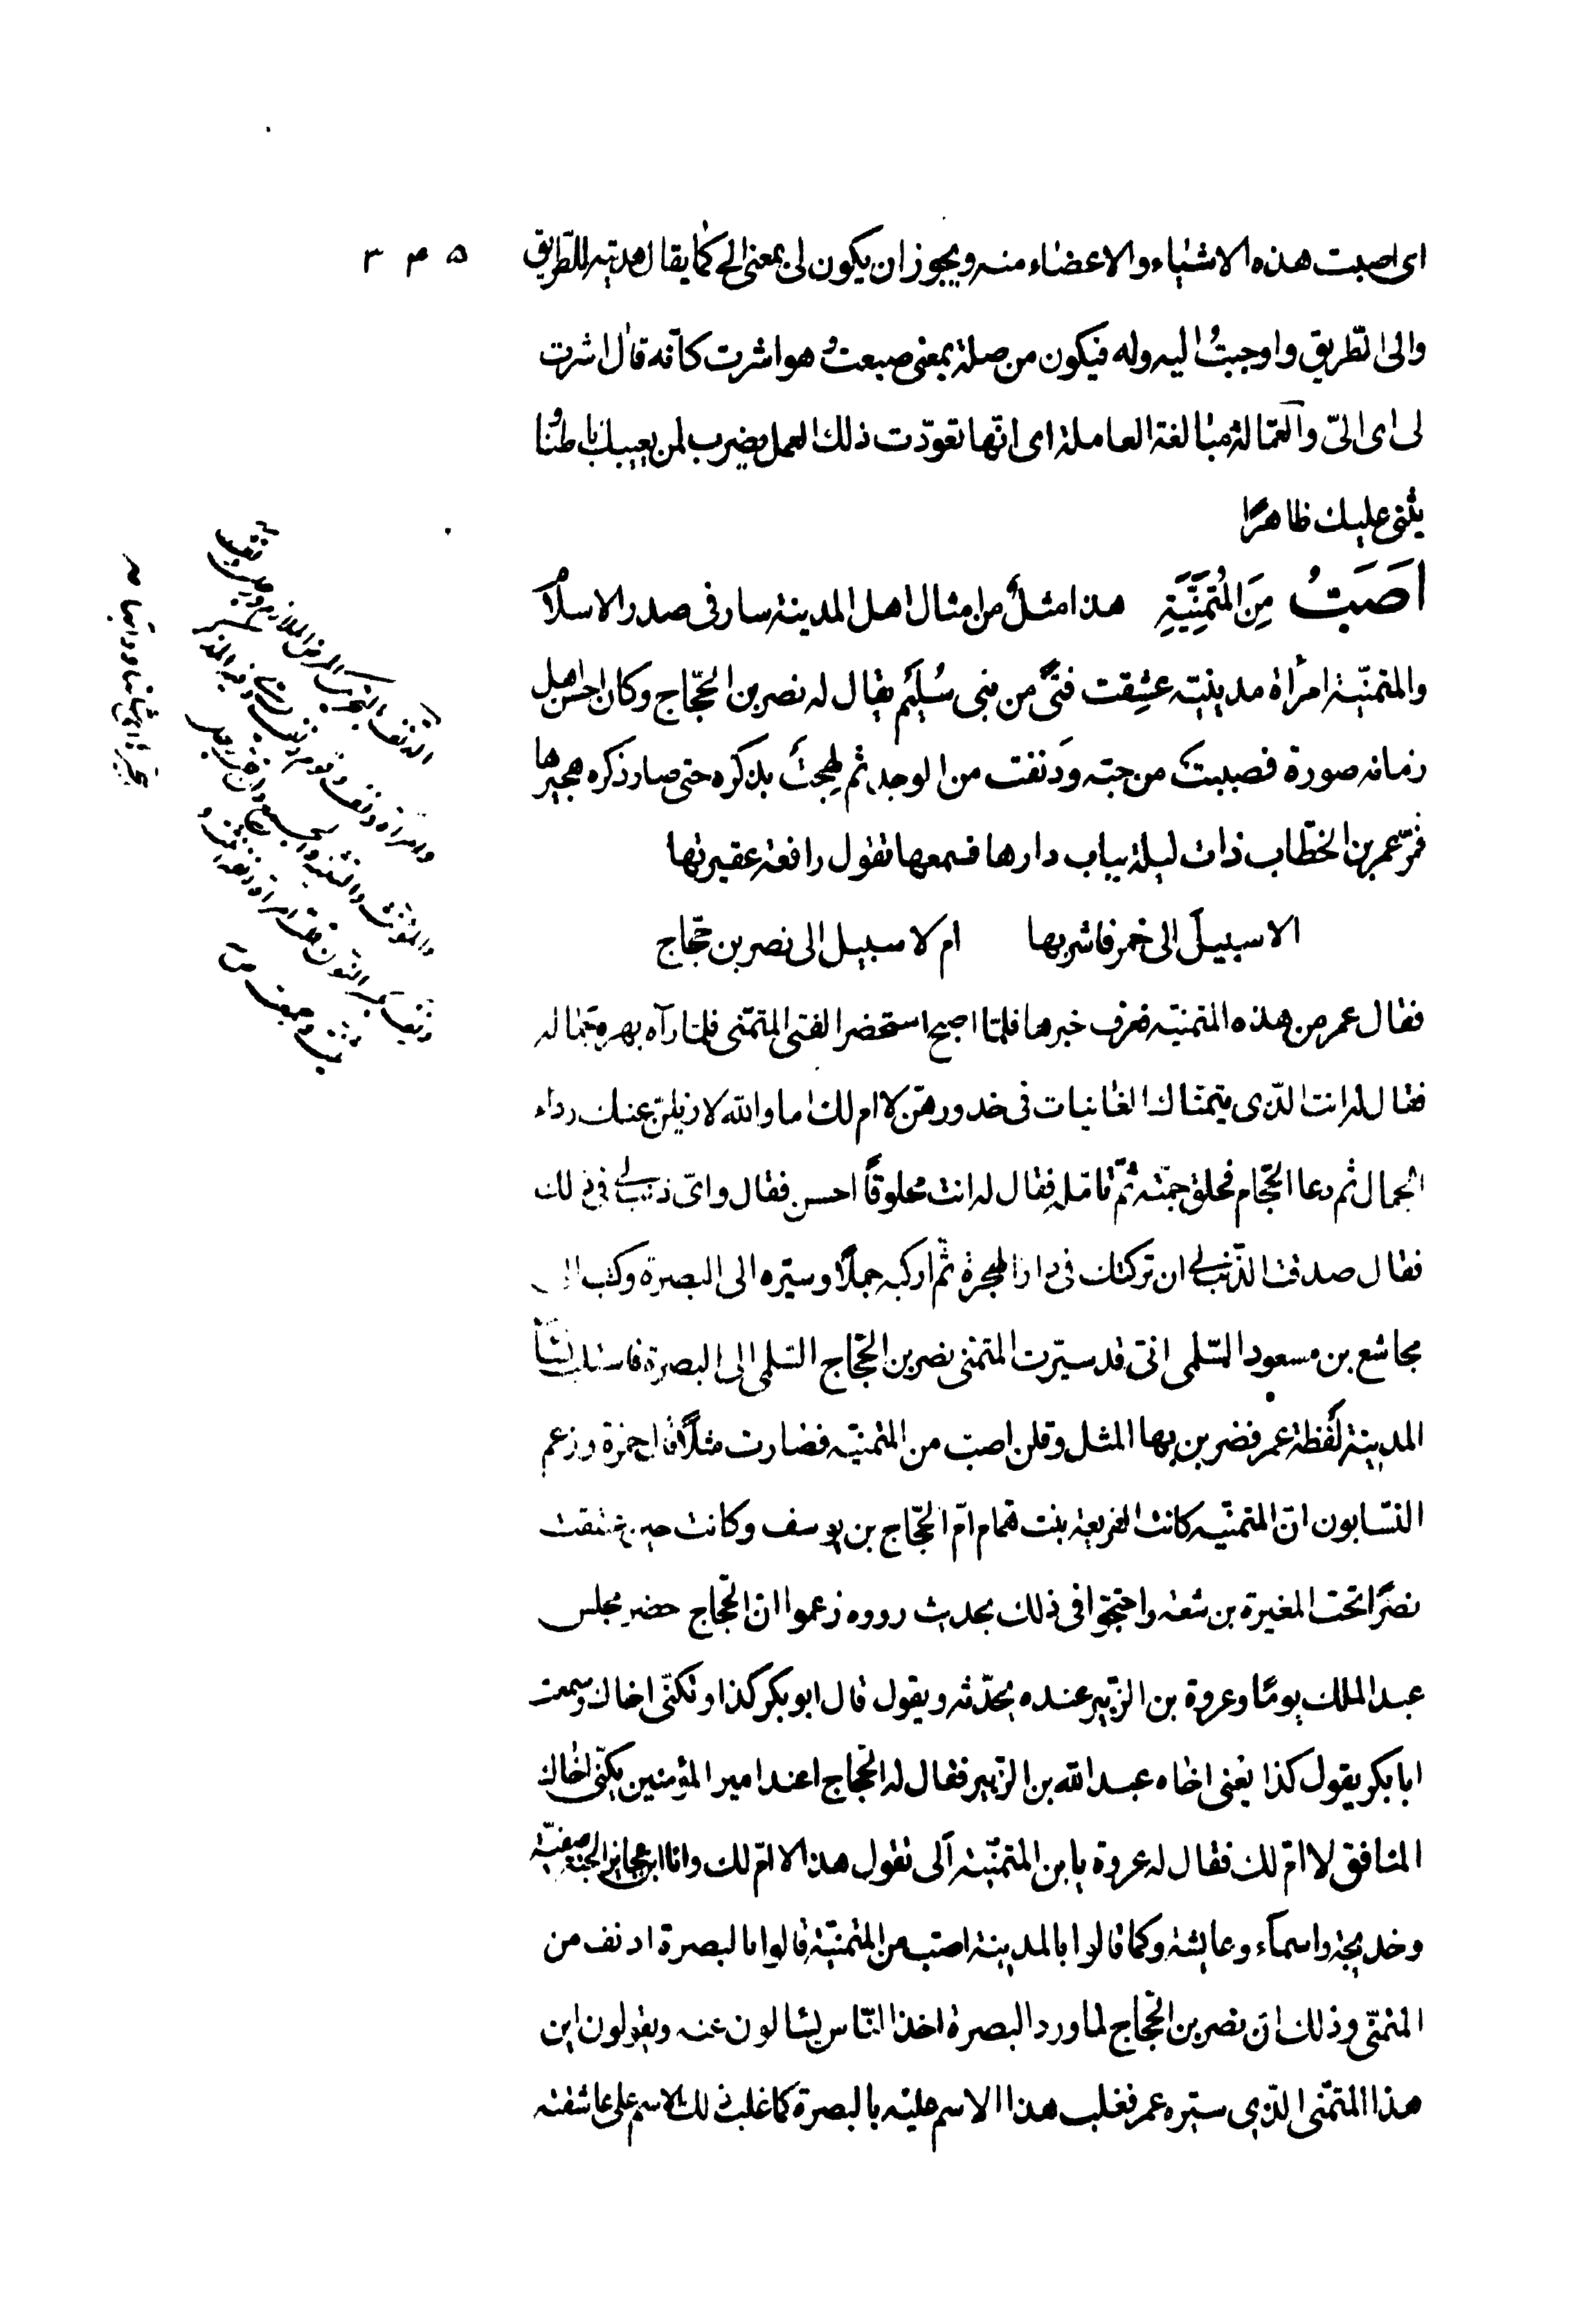 ٣٤٥
اى اصبت هذه الاشياء والاعضاء منه ويجوز ان يكون لى بمعنى الى كما يقال هديته للطريق
والى الطريق واوحيتُ اليه وله فيكون من صلة بمعنى صبعت هو اشرت كانّه قال اشرت
لى اى الىّ والعمّالة مبالغة العاملة اى انّها تعوّدت ذلك العمل يضرب لمن يعيبك باطنًا و
يثنى عليك ظاهرًا
اَصَبُّ مِنَ المُتَمَنِّيَةِ هذا مثلٌ من امثال اهل المدينة سار فى صدر الاسلام
والمتمنّية امرأة مدينيّة عشِقت فتىً من بنى سُلَيم يقال له نصر بن الحجّاج وكان احسن اهل
زمانه صورة فصببت من حبّه ودَنفت من الوجد ثم لهجتْ بذكره حتى صار ذكره هجيراها
فمرّ عمر بن الخطّاب ذات ليلة بباب دارها فسمعها تقول رافعة عقيرتها
الا سبيلَ الى خمر فاشربها ام لا سبيل الى نصر بن حجّاج
فقال عمر من هذه المتمنيّة فعرف خبرها فلمّا اصبح استحضر الفتى المتمنّى فلمّا رآه بهره جماله
فقال له انت الّذى يتمنّاك الغانيات فى خدورهنّ لا امّ لك اما والله لازيلنّ عنك رداء
الجمال ثم دعا الحجّام فحلق جمّته ثمّ تامّله فقال له انت محلوقًا احسن فقال واىّ ذنب لى فى ذلك
فقال صدقت الذّنب لى ان تركتك فى دار الهجرة ثم اركبه جملًا وسيّره الى البصرة وكتب الى
مجاشع بن مسعود السّلمى انّى قد سيّرت المتمنّى نصر بن الحجّاج السّلمى الى البصرة فاستلب نساء
المدينة لفظة عمر فضربن بها المثل وقلن اصبّ من المتمنيّة فصارت مثلًا قال حمزة وزعم
النسّابون انّ المتمنّيه كانت الفريعة بنت همام امّ الحجّاج بن يوسف وكانت حين عشقت
نصرًا تحت المغيرة بن شعبة واحتجّوا فى ذلك بحديث رووه زعموا ان الحجّاج حضر مجلس
عبد الملك يومًا وعروة بن الزبير عنده يحدّثه ويقول قال ابو بكر كذا وتكنّى اخاك وسمعت
ابا بكر يقول كذا يعنى اخاه عبد الله بن الزبير فقال له الحجّاج اعند امير المؤمنين يكنّى اخاك
المنافق لا امّ لك فقال له عروة يابن المتمنّية الى تقول هذا لا امّ لك وانا ابن عجايز الجنّة صفيّة
وخديجة واسماء وعايشة وكما قالوا بالمدينة اصبّ من المتمنيّة قالوا بالبصرة ادنف من
المتمنّى وذلك انّ نصر بن الحجّاج لما ورد البصرة اخذ النّاس يسالون عنه ويقولون اين
هذا المتمنّى الذى سيّره عمر فغلب هذا الاسم عليه بالبصرة كما غلب ذلك الاسم على عاشقته